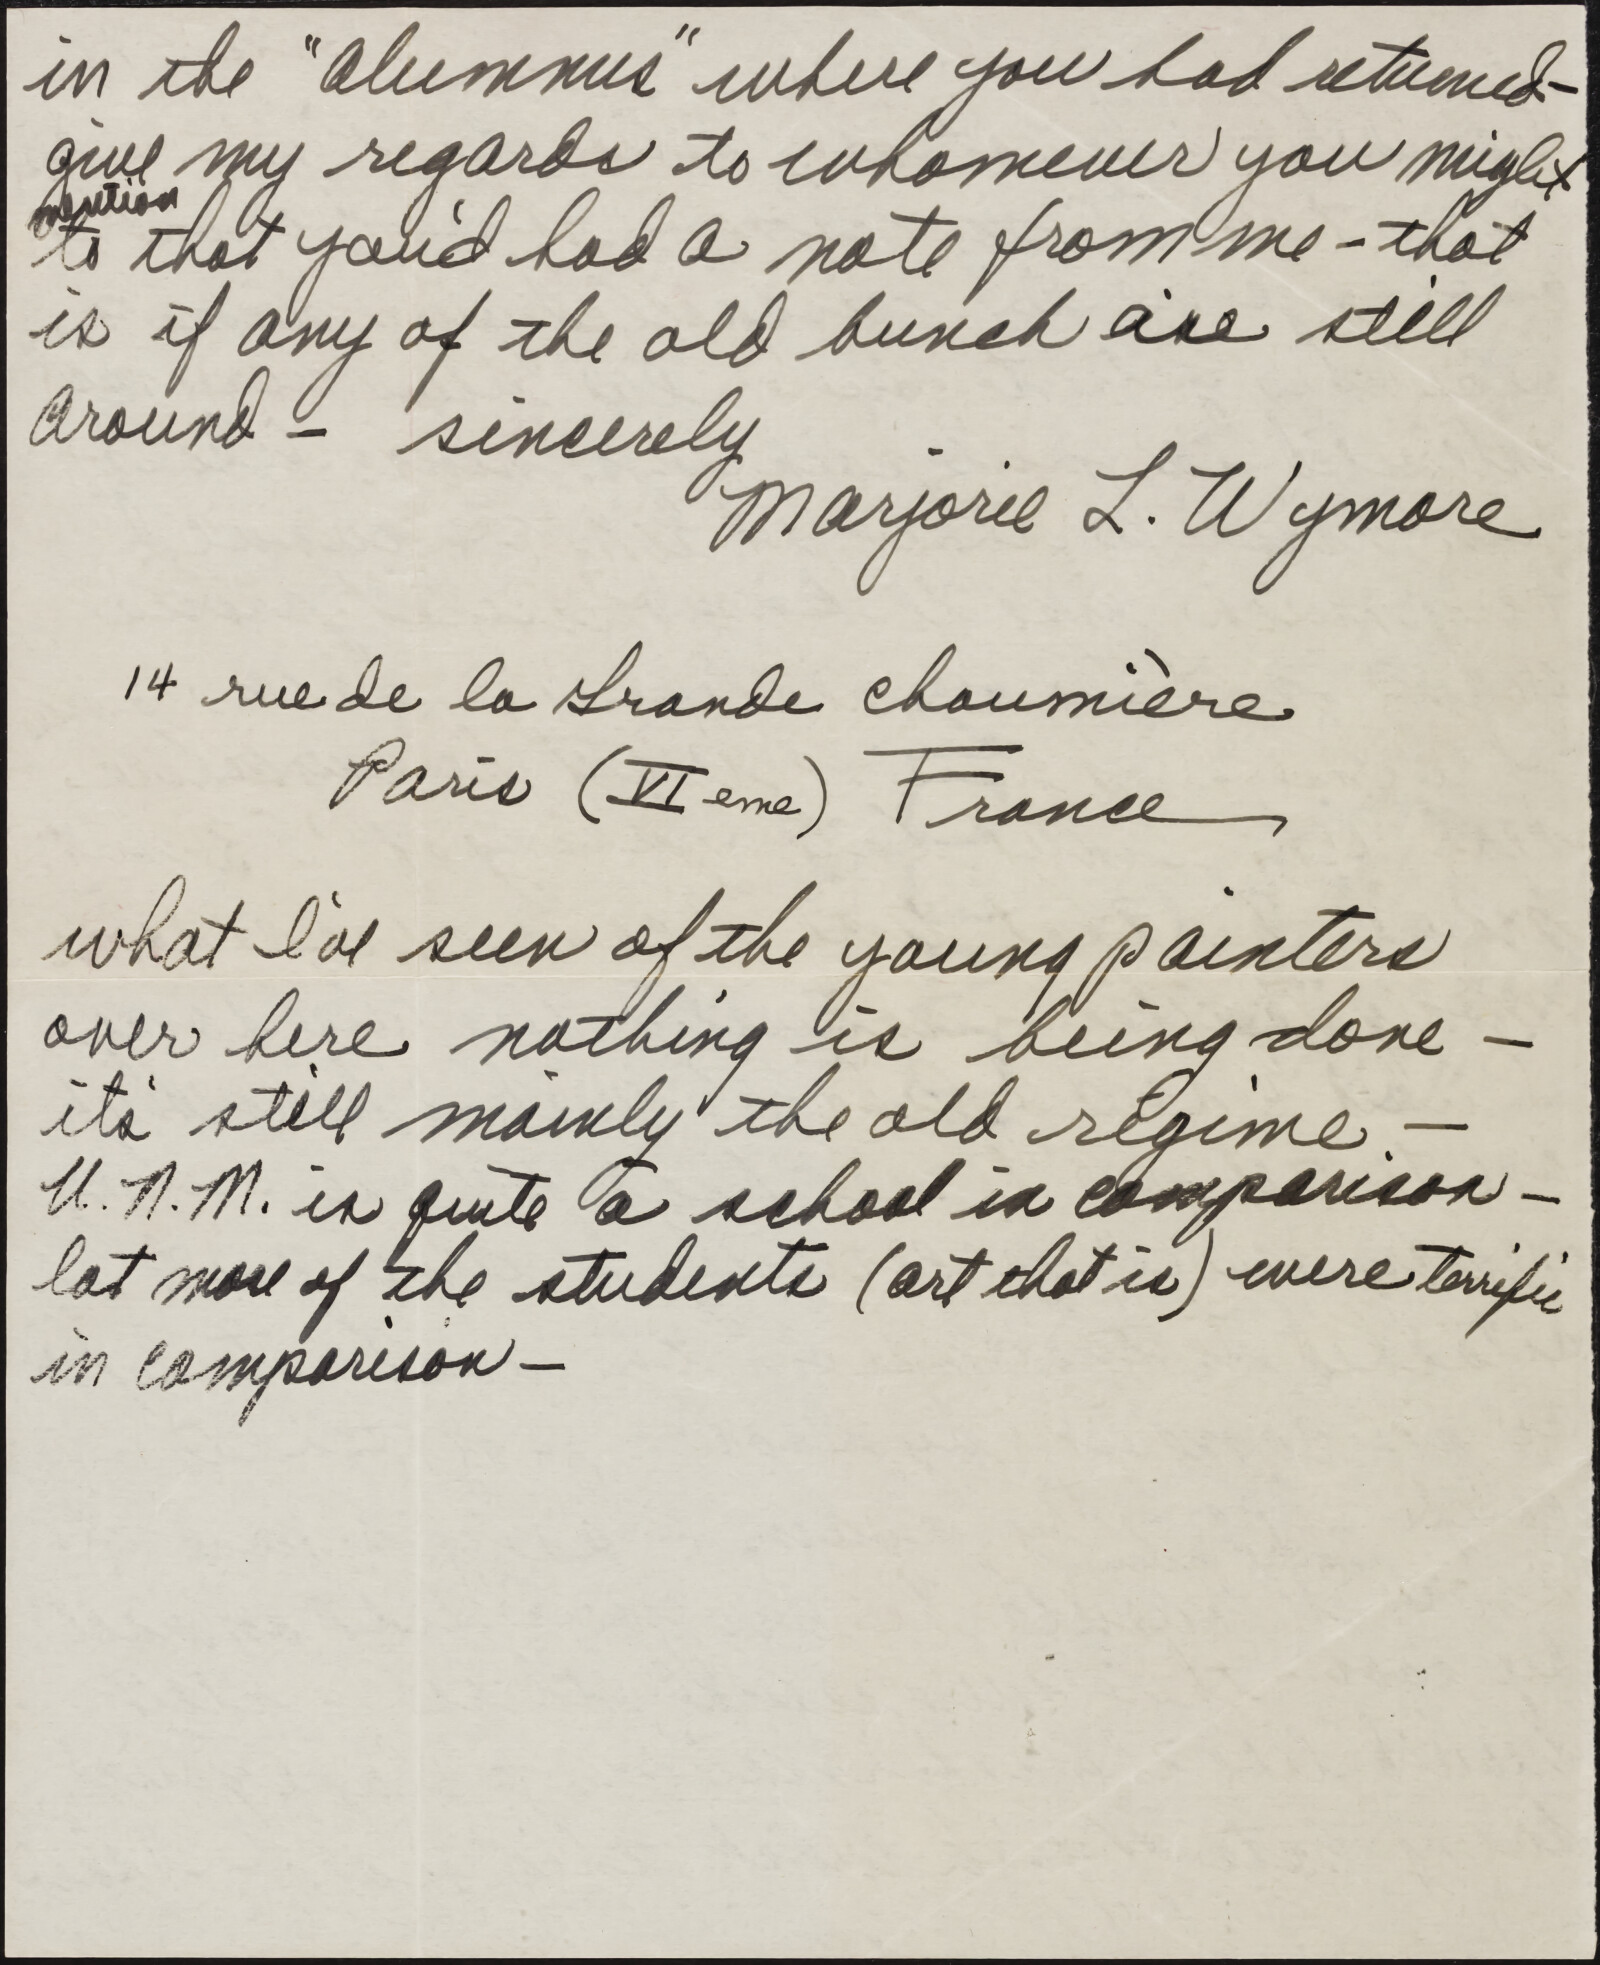 in the "Alumnus" where you had returned -
give my regards to whomever you might
mention
to that you'd had a note from me - that
is if any of the old bunch are still
around - sincerely
Marjorie L. Wymore
14 rue de la Grande Chaumière
Paris (VI eme) France
what I've seen of the young painters
over here nothing is being done -
it's still mainly the old régime -
U.N.M. is quite a school in comparison -
lot more of the students (art that is) were terrific
in comparison -